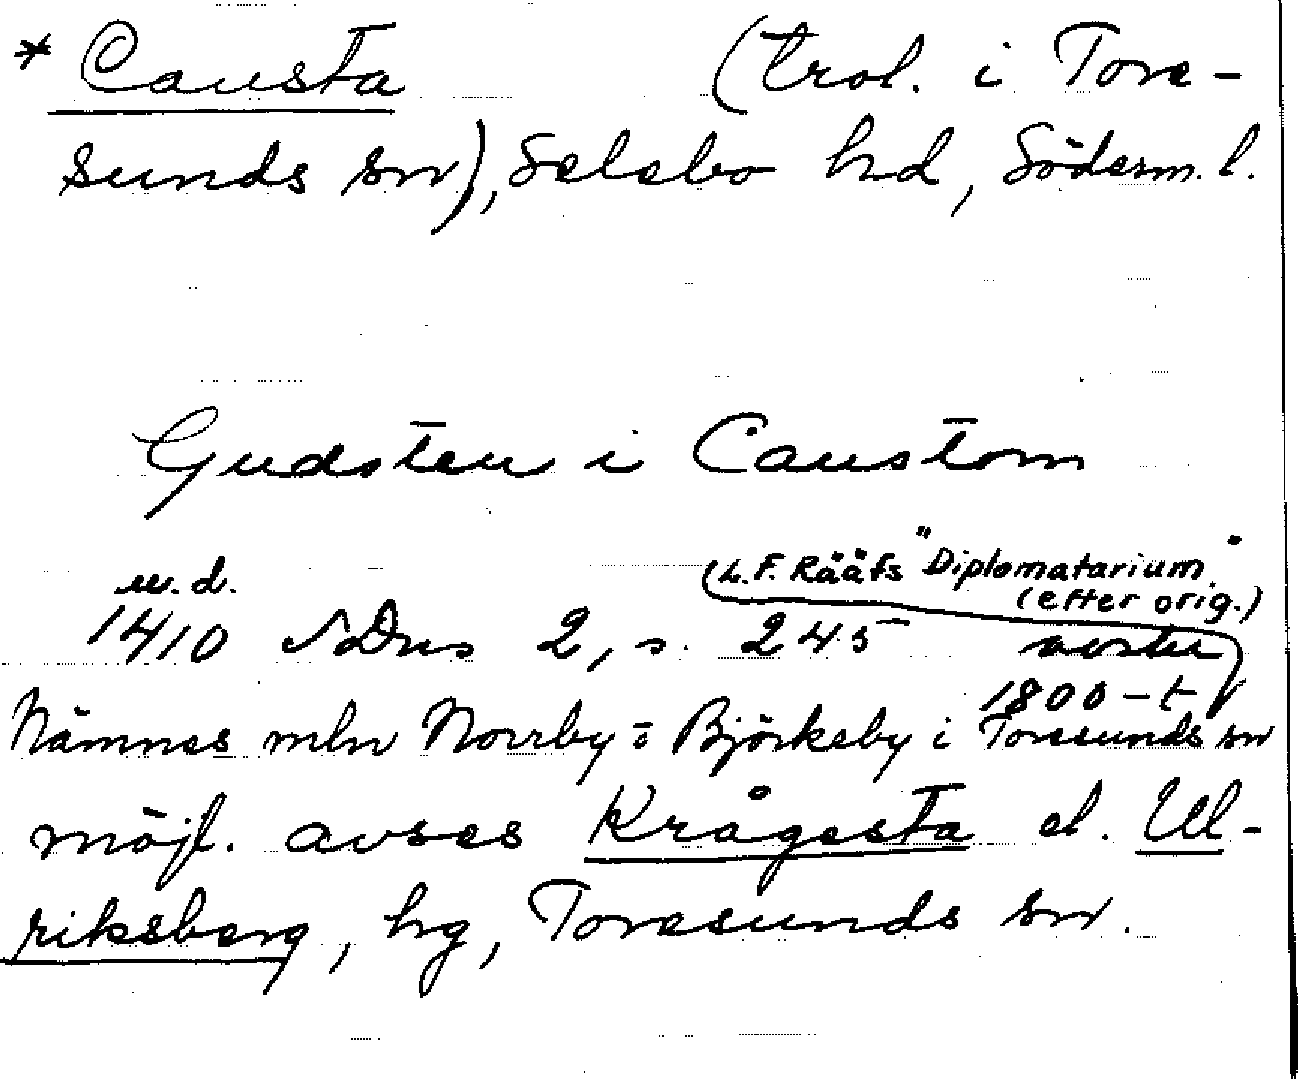 * Causta (trol. i Tore-
sunds sn), Selebo hd, Söderm. l.
Gudsten i Caustom
u.d. (L.F. Rääfs "Diplomatarium"
(efter orig.)
1410 SDns 2, s. 245
1800-t
Nämnes mln Norrby = Björkeby i Toresunds sn
möjl. avses Krågesta el. Ul-
riksberg, hg, Toresunds sn.